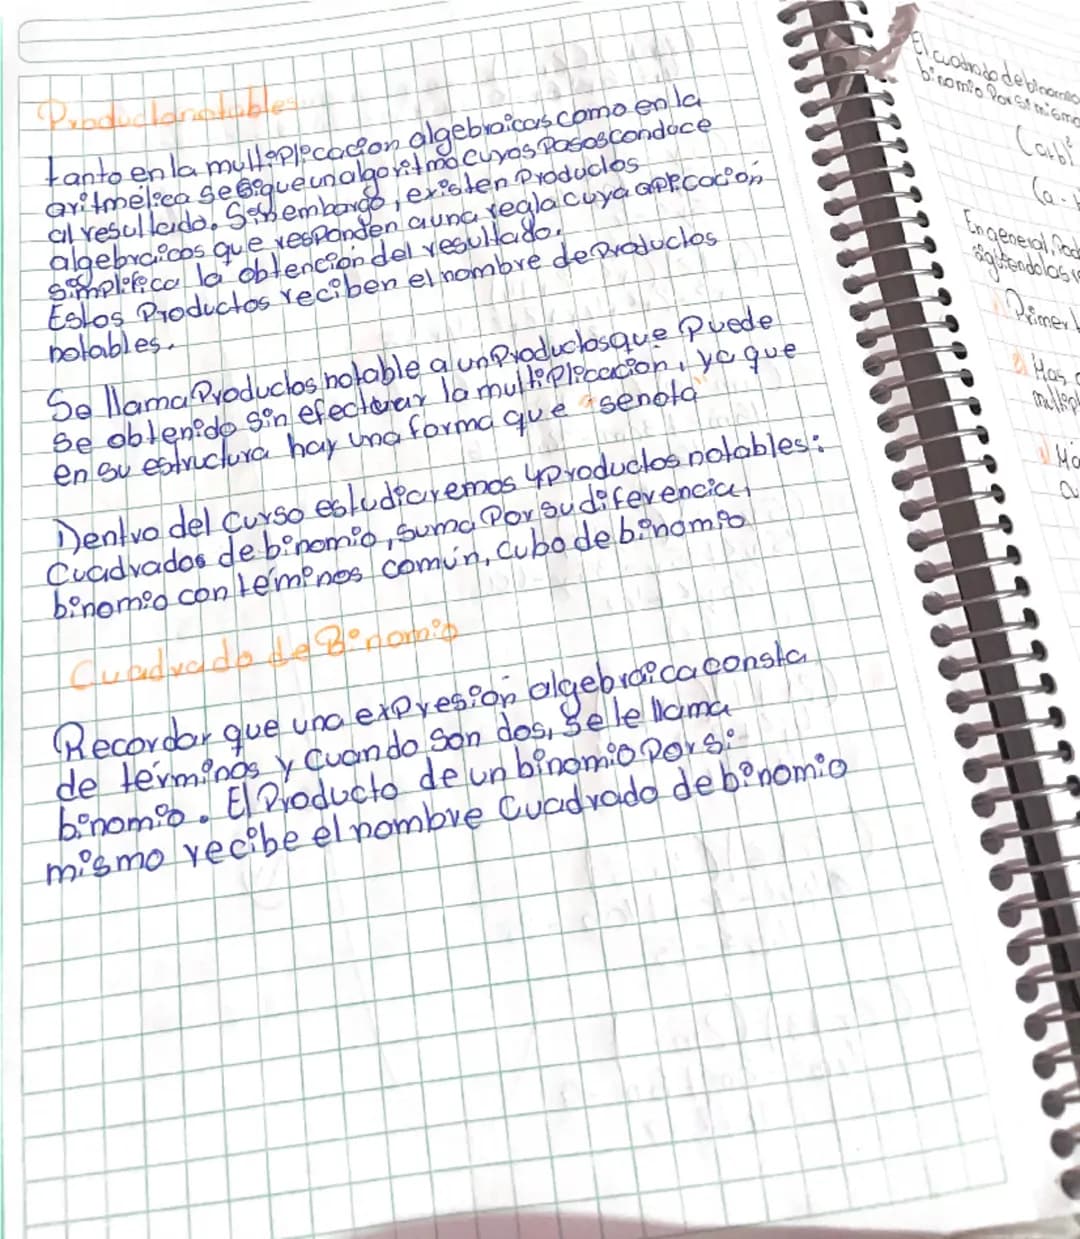 Productonotables
tanto en la multiplicación algebraicas como en la
aritmética se sigue un algoritmo cuyos Pasos conduce
al resultado. Sin embargo, existen Productos
algebraicos que responden a una regla cuya aplicación
simplifica la obtención del resultado.
Estos Productos reciben el nombre de Productos
notables.
Se llama Productos notable a un Productos que Puede
se obtenido sin efectuar la multiplicación, ya que
en su estructura hay una forma que senota
Dentro del Curso estudiaremos 4 Productos notables:
Cuadrados de binomio, Suma Por su diferencia,
binomio con téminos común, Cubo de binomio
Cuadrado de Binomio
Recordar que una expresión algebraica consta
de términos y Cuando son dos, se le llama
binomio. El Producto de un binomio Por si
mismo recibe el nombre Cuadrado de binomio
El cuadrado de binomio
binomio Por si mismo
(a+b)²
(a -
En general, Pod
Primer
Mas
multip